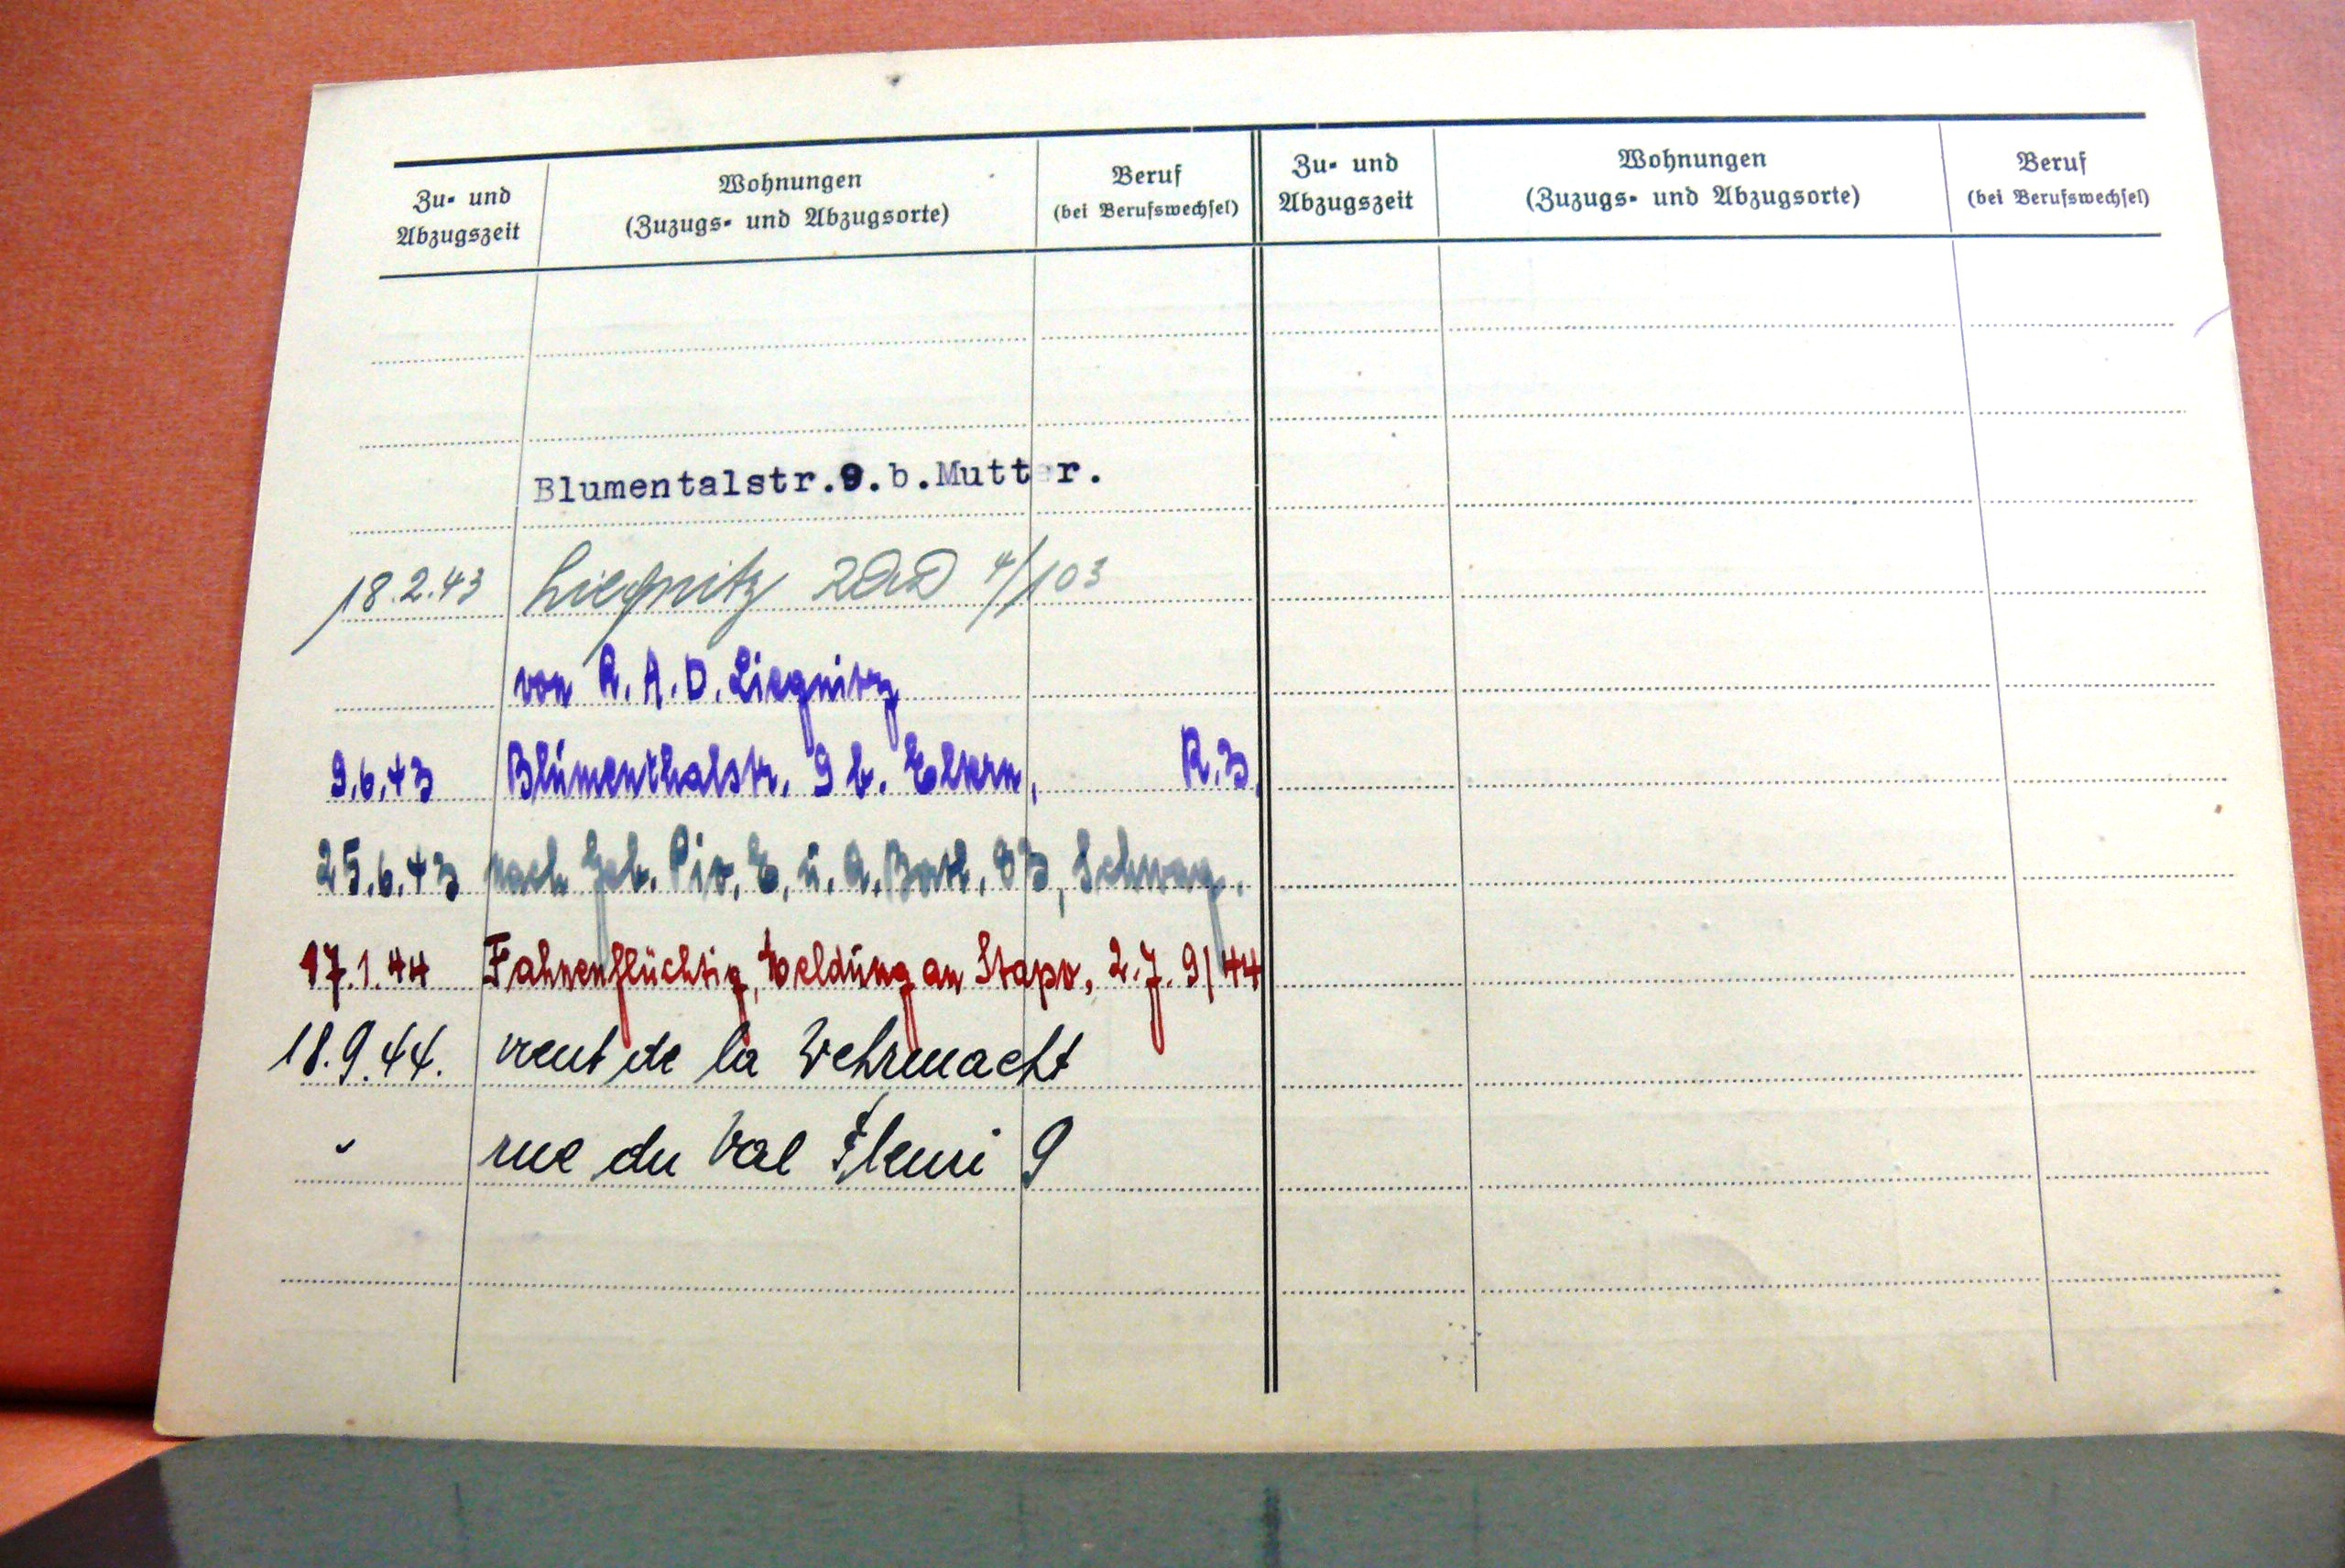 Zu- und
Abzugszeit
Wohnungen
(Zuzugs- und Abzugsorte)
Beruf
(bei Berufswechsel)
Zu- und
Abzugszeit
Wohnungen
(Zuzugs- und Abzugsorte)
Beruf
(bei Berufswechsel)
Blumentalstr.9.b.Mutter.
18.2.43 Liegnitz RAD 4/103
von R.A.D. Liegnitz
9.6.43 Blumenthalstr. 9 b. Eltern, R.3.
25.6.43 nach Geb. E. u. A. Schwag.
17.1.44 Fahnenflüchtig, Meldung an Stapo, 2.7.9/44
18.9.44. vient de la Wehrmacht
" rue du Val Fleuri 9